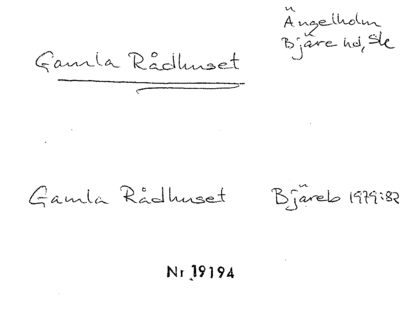 Ängelholm
Bjäre hd, Sk
Gamla Rådhuset
Gamla Rådhuset Bjäreb 1979:82
Nr 19194